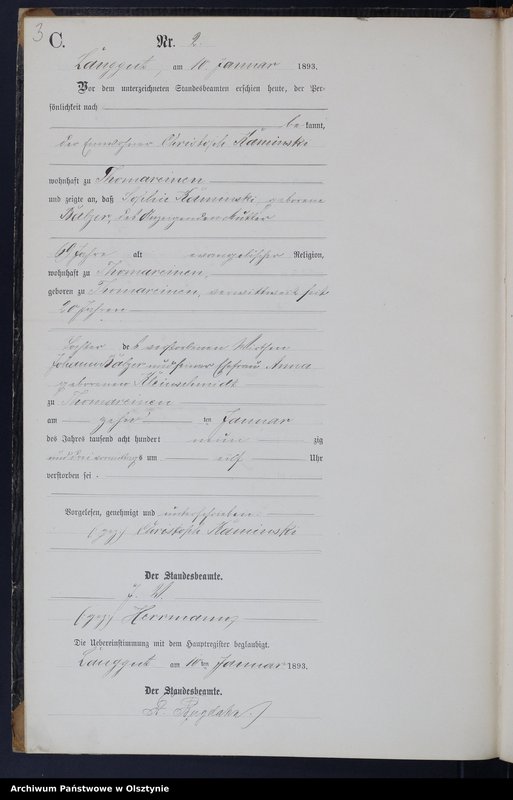 3
C.
Nr. 2.
Langgut, am 10. Januar 1893.
Vor dem unterzeichneten Standesbeamten erschien heute, der Per-
sönlichkeit nach
be kannt,
der Einwohner Christoph Kaminski
wohnhaft zu Thomareinen
und zeigte an, daß Sophie Kaminski, geborene
Balzer, des Anzeigenden Mutter
69 Jahre alt evangelischer Religion,
wohnhaft zu Thomareinen,
geboren zu Thomareinen, verwittwet seit
20 Jahren
Tochter des verstorbenen Wirthen
Johann Balzer und seiner Ehefrau Anna
geborenen Kleinschmidt
zu Thomareinen
am ten Januar
des Jahres tausend acht hundert neun zig
und drei vormittags um elf Uhr
verstorben sei.
Vorgelesen, genehmigt und unterschrieben
(gez) Christoph Kaminski
Der Standesbeamte.
J. V.
(gez) Herrmann
Die Uebereinstimmung mit dem Hauptregister beglaubigt.
Langgut am 10ten Januar 1893.
Der Standesbeamte.
Bogdahn
Archiwum Państwowe w Olsztynie